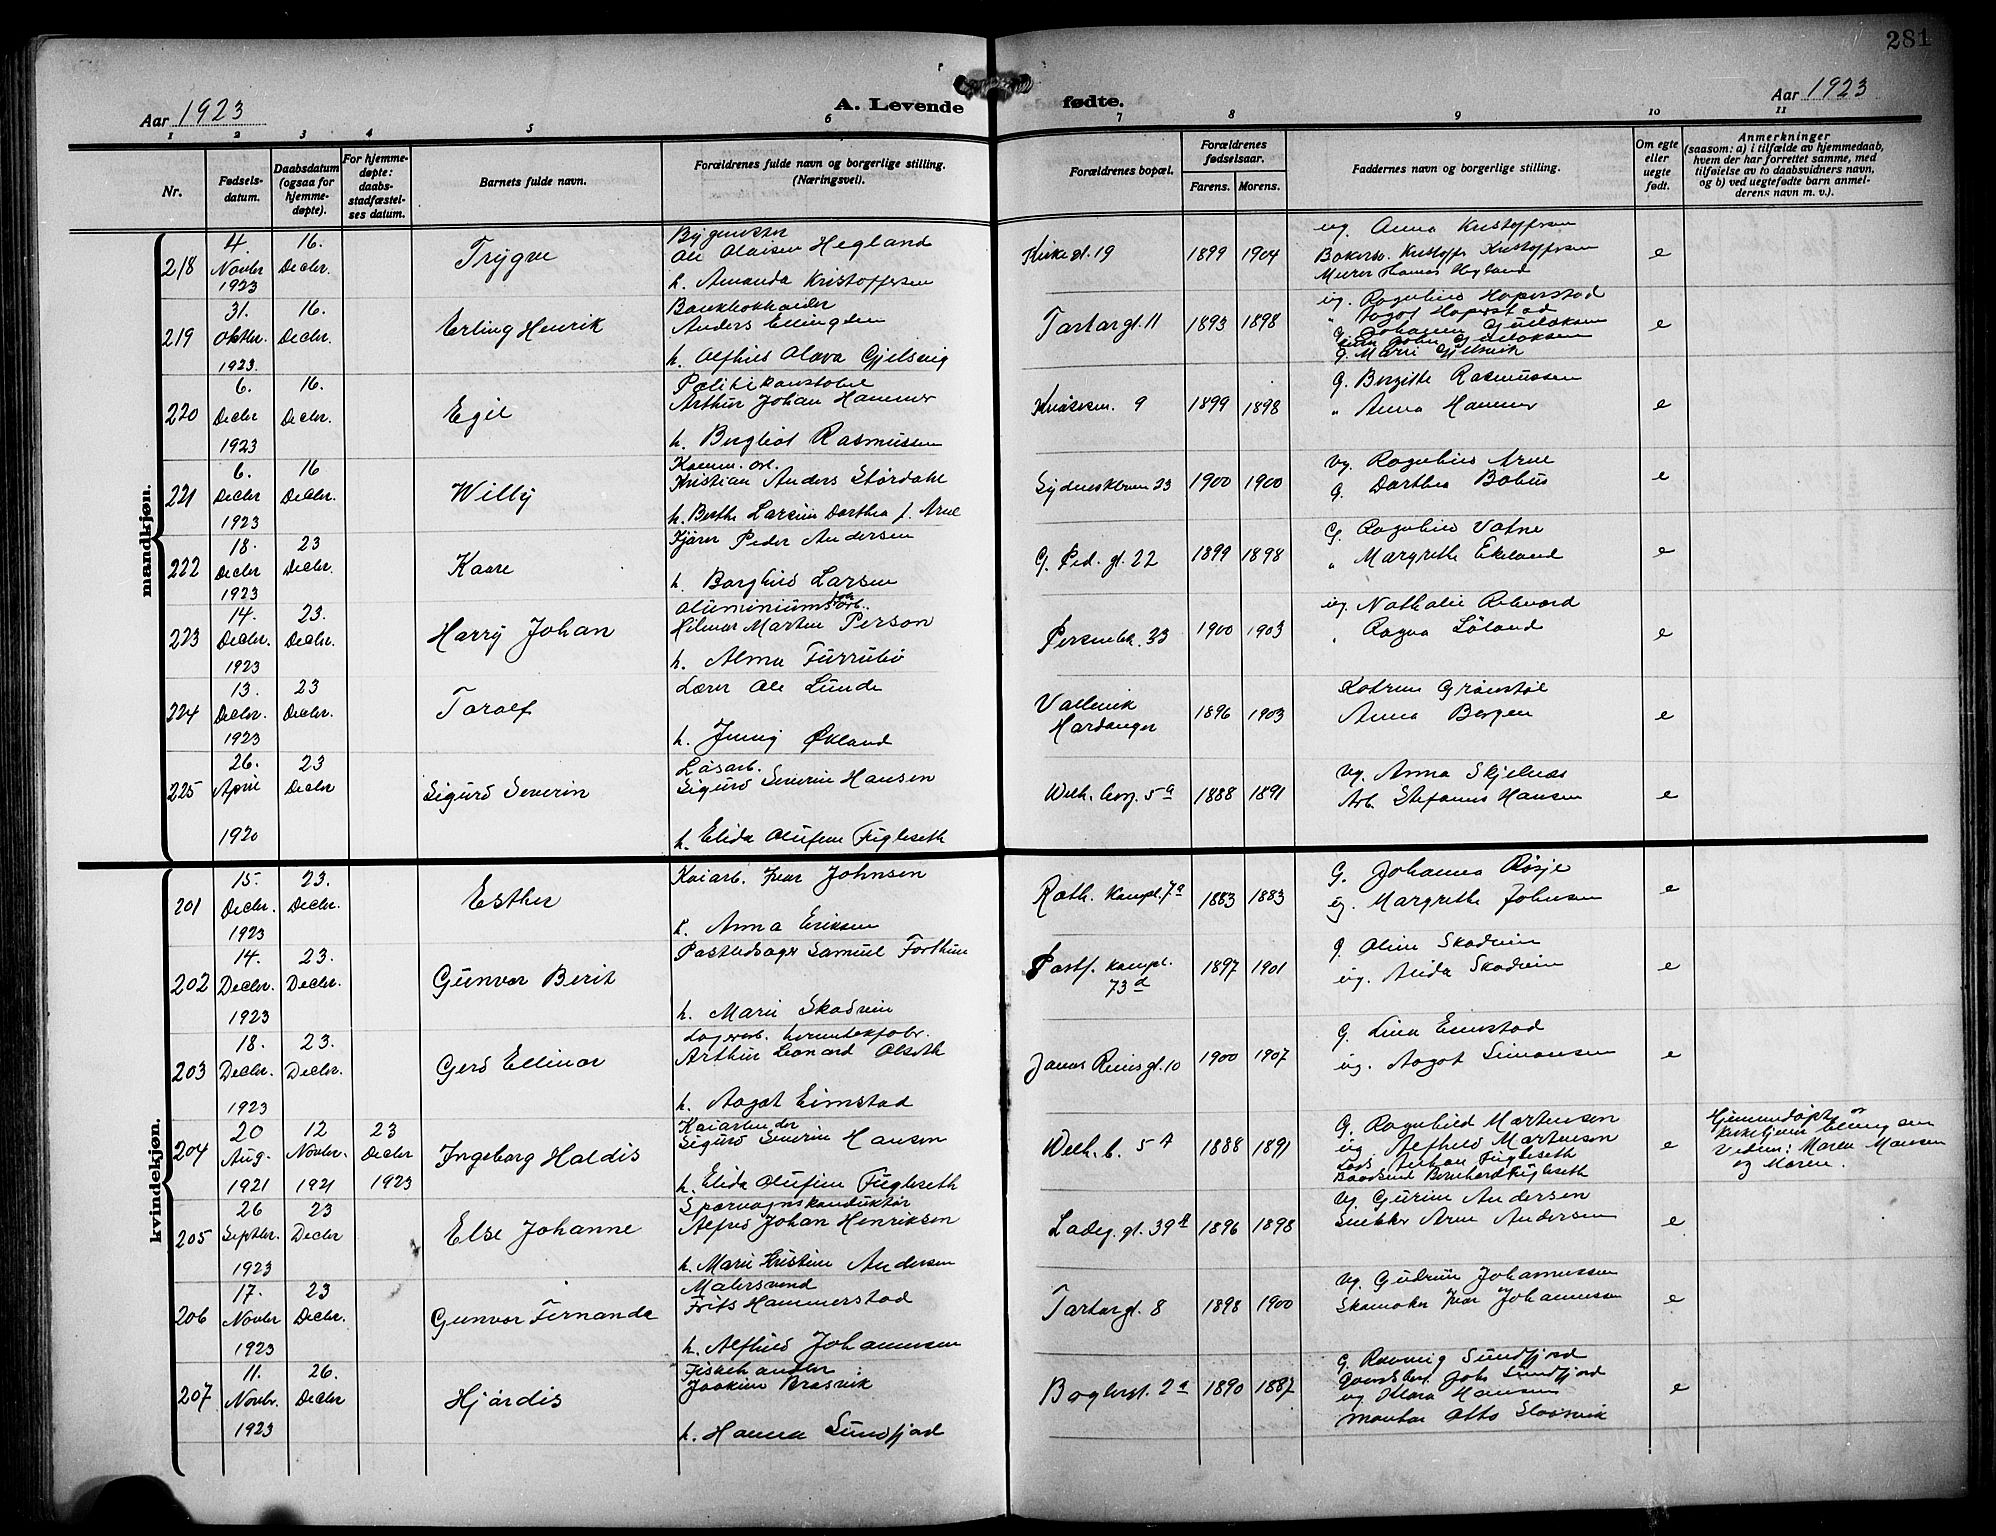 281
Aar 1923
A. Levende fødte.
Aar 1923
1 2 3 4 5 6 7 8 9 10 11
Nr.
Fødsels-
datum.
Daabsdatum
(ogsaa for
hjemme-
døpte).
For hjemme-
døpte:
daabs-
stadfæstel-
ses datum.
Barnets fulde navn.
Forældrenes fulde navn og borgerlige stilling.
(Næringsvei).
Forældrenes bopæl.
Forældrenes
fødselsaar.
Farens. Morens.
Faddernes navn og borgerlige stilling.
Om egte
eller
uegte
født.
Anmerkninger
(saasom: a) i tilfælde av hjemmedaab,
hvem der har forrettet samme, med
tilføielse av to daabsvidners navn,
og b) ved uegtefødte barn anmel-
derens navn m. v.).
mandkjøn.
218
4. Novbr 1923
16. Decbr.
Trygve
Ole Olaisen Hegland
h. Amanda Kristoffersen
Kirkegt. 19
1899 1904
ug. Anna Kristoffersen
Kristoffer Kristoffersen
Murer Hegland
e
219
31. Oktbr. 1923.
16. Decbr.
Erling Henrik
Bankbokholder
Anders Ellingsen
h. Alfhild Olava Gjelsvig
Tartargt. 11
1893 1898
ug. Ragnhild Hoperstad
" Aagot Hoperstad
G. Marie Gjelsvik
e
220
6. Decbr 1923
16. Decbr.
Egil
Politikonstabel
Arthur Johan Hammer
h. Bergliot Rasmussen
9
1899 1898
G. Bergitte Rasmussen
" Anna Hammer
e
221
6. Decbr 1923
16 Decbr.
Willy
Komm. arb.
Kristian Anders Størdahl
h. Berthe Larsine Dorthea f. Arne
Sydneskleven 23
1900 1900
ug. Ragnhild Arne
G. Dorthea Bobus
e
222
18. Decbr 1923
23 Decbr.
Kaare
Kjører Peder Andersen
h. Borghild Larsen
G. Ped. gt. 22
1899 1898
G. Ragnhild Vatne
" Margrethe Ekeland
e
223
14. Decbr. 1923
23. Decbr.
Harry Johan
Hilmar Martin Person
h. Alma Furrubø
33
1900 1903
ug. Nathalie
" Ragna Løland
e
224
13. Decbr. 1923
23 Decbr.
Toralf
Lærer Ole Lunde
h. Jenny Økland
Vallevik
Hardanger
1896 1903
Katrine Grønstøl
Anna Bergen
e
225
26. April 1920
23 Decbr
Sigurd Severin
Løsarb.
Sigurd Severin Hansen
h. Elida Olufine Fugleseth
Welh. berg. 5a
1888 1891
ug. Anna Skjelnes
Arb. Stefanus Hansen
e
kvindekjøn.
201
15. Decbr. 1923
23. Decbr.
Esther
Kaiarb. Ivar Johnsen
h. Anna Eriksen
Roth. kampl. 7a
1883 1883
G. Johanna Røsje
ug. Margrethe Johnsen
e
202
14. Decbr. 1923
23. Decbr.
Gunvor Berit
Samuel Forthun
h. Marie Skadvin
Postf. kampl.
73d
1897 1901
g. Oline Skadvin
ug. Alida Skadvin
e
203
18. Decbr. 1923
23. Decbr.
Gerd Ellinor
Lagerarb. hermetikfabr.
Arthur Leonard Olseth
h. Aagot Eimstad
Jonas Reinsgt. 10
1900 1907
G. Lina Eimstad
ug. Aagot Simonsen
e
204
20 Aug. 1921
12 Novbr. 1921
23 Decbr 1923
Ingeborg Haldis
Kaiarbeider
Sigurd Severin Hansen
h. Elida Olufine Fugleseth
Welh. b. 5A
1888 1891
G. Ragnhild Martensen
ug. Alfhild Martensen
Lods Anton Fugleseth
Baadsmd Bernhard Fugleseth
e
Hjemmedøpt av
kirketjener Ellingsen
Vidner: Maren Hansen
og Moren.
205
26 Septbr. 1923
23 Decbr
Else Johanne
Sporvognskonduktør
Alfred Johan Henriksen
h. Marie Kristine Andersen
Ladeg. gt. 39A
1896 1898
ug. Gurine Andersen
Snekker Arne Andersen
e
206
17. Novbr 1923
23 Decbr.
Gunvor Fernanda
Malersvend
Frits Hammerstad
h. Alfhild Johannessen
Tartargt. 8
1898 1900
ug. Gudrun Johannessen
Skomaker Ivar Johannessen
e
207
11. Novbr. 1923
26. Decbr
Hjørdis
Fiskehandler
Joakim Brasvik
h. Hanna Sundfjord
Boglerst. 2a
1890 1887
G. Rannveig Sundfjord
Johs Sundfjord
ug Klara Hansen
Montør Otto
e